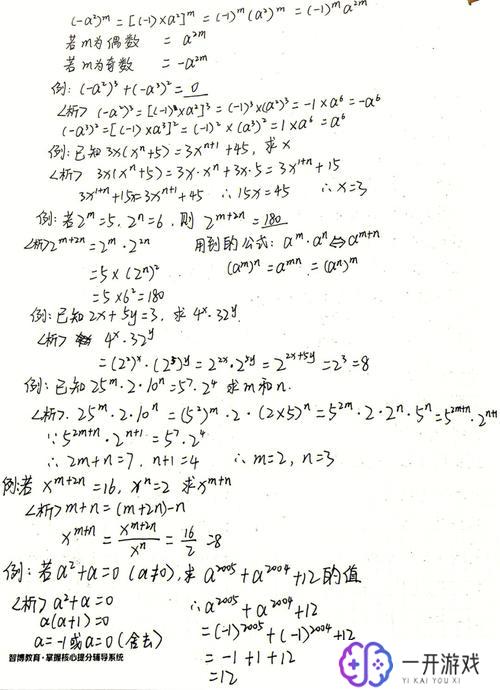 (-a²)ᵐ = [(-1)×a²]ᵐ = (-1)ᵐ(a²)ᵐ = (-1)ᵐ a²ᵐ
若m为偶数 = a²ᵐ
若m为奇数 = -a²ᵐ
例: (-a²)³+(-a³)²=0
<析> (-a²)³=[(-1)×a²]³=(-1)³×(a²)³=-1×a⁶=-a⁶
(-a³)²=[(-1)×a³]²=(-1)²×(a³)²=1×a⁶=a⁶
例:已知3x(xⁿ+5)=3xⁿ⁺¹+45, 求x
<析> 3x(xⁿ+5)=3x·xⁿ+3x·5=3x¹⁺ⁿ+15
3x¹⁺ⁿ+15x=3xⁿ⁺¹+45 ∴15x=45 ∴x=3
例:若2ᵐ=5, 2ⁿ=6, 则 2ᵐ⁺²ⁿ=180
<析>2ᵐ⁺²ⁿ=2ᵐ·2²ⁿ 用到的公式: aᵐ·aⁿ⇔aᵐ⁺ⁿ
=5×(2ⁿ)² (aᵐ)ⁿ=aᵐⁿ=(aⁿ)ᵐ
=5×6²=180
例:已知2x+5y=3, 求4ˣ·32ʸ.
<析> 4ˣ·32ʸ
=(2²)ˣ·(2⁵)ʸ=2²ˣ·2⁵ʸ=2²ˣ⁺⁵ʸ=2³=8
例:已知25ᵐ·2·10ⁿ=5⁷·2⁴ 求m和n.
<析>. 25ᵐ·2·10ⁿ=(5²)ᵐ·2·(2×5)ⁿ=5²ᵐ·2·2ⁿ·5ⁿ=5²ᵐ⁺ⁿ·2ⁿ⁺¹
∵5²ᵐ⁺ⁿ·2ⁿ⁺¹=5⁷·2⁴
∴2m+n=7, n+1=4 ∴m=2, n=3
例:若 xᵐ⁺²ⁿ=16, xⁿ=2 求xᵐ⁺ⁿ
<析>m+n=(m+2n)-n
xᵐ⁺ⁿ=xᵐ⁺²ⁿ/xⁿ=16/2=8
例:若a²+a=0 (a≠0), 求a²⁰⁰⁵+a²⁰⁰⁴+12的值
<析>a²+a=0 ∴a²⁰⁰⁵+a²⁰⁰⁴+12
a(a+1)=0 =(-1)²⁰⁰⁵+(-1)²⁰⁰⁴+12
a=-1或a=0(舍去) =-1+1+12
=12
智博教育·掌握核心提分辅导系统
一开游戏
YI KAI YOU XI